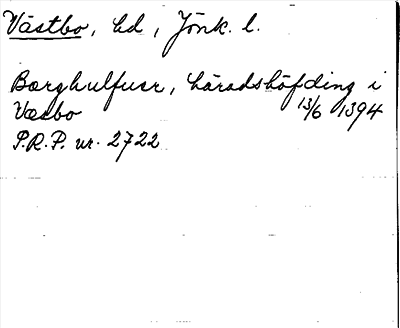 Västbo, hd, Jönk. l.
Borghulfusr, häradshöfding i
Væsbo 13/6 1394
P.R.P. nr. 2722